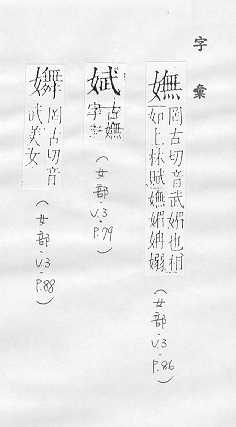 字彙
嫵
罔古切音武媚也相
如上林賦嫵媚㚩嫋
(女部.V.3.P.86)
娬
古嫵
字
(女部.V.3.P.79)
罔古切音
武美女
(女部.V.3.P.88)